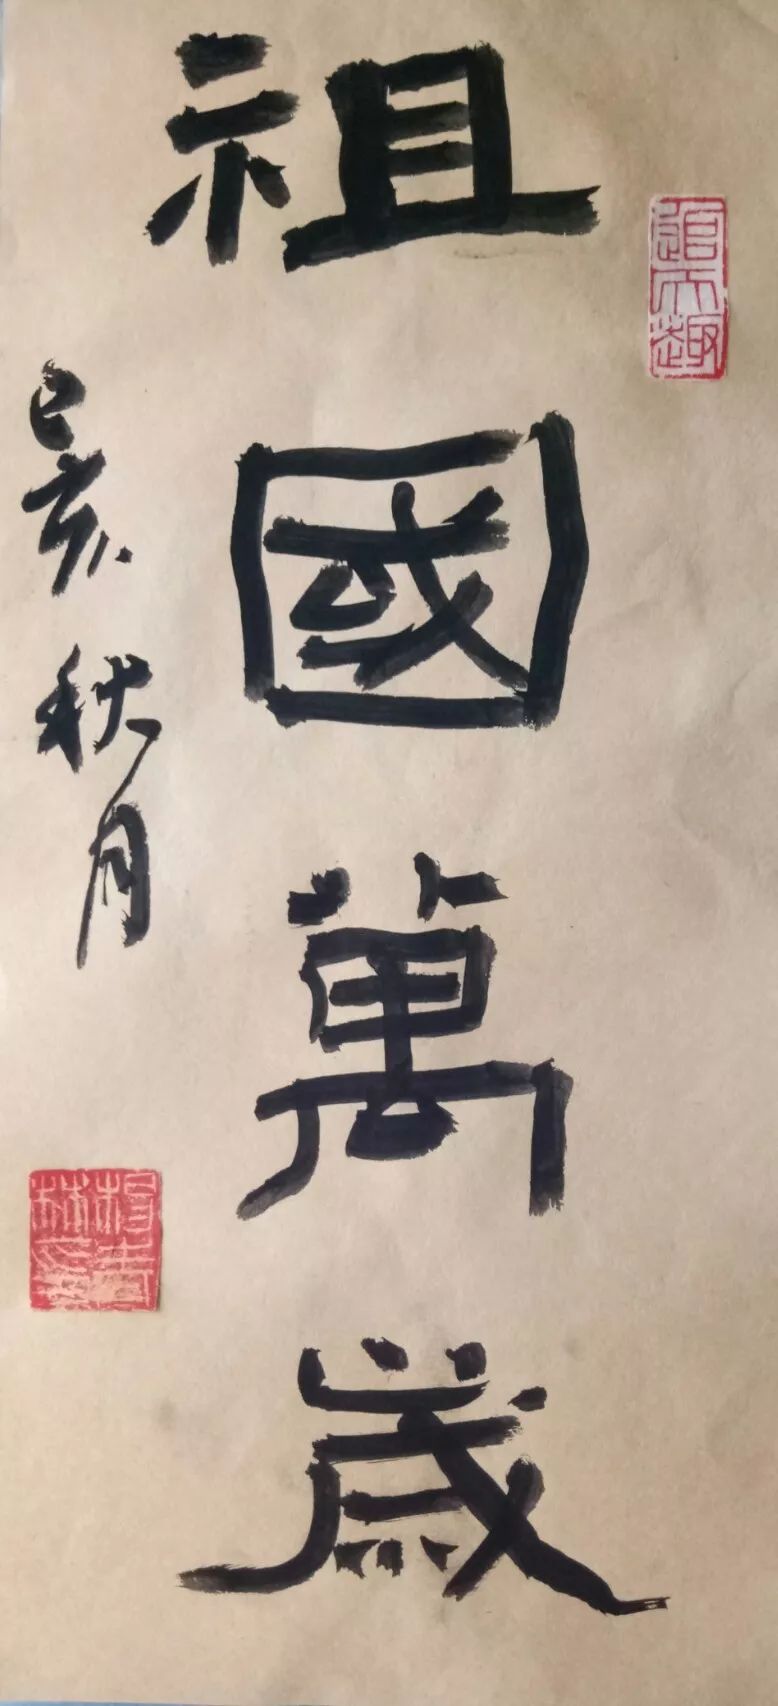 祖國萬歲
己亥秋月